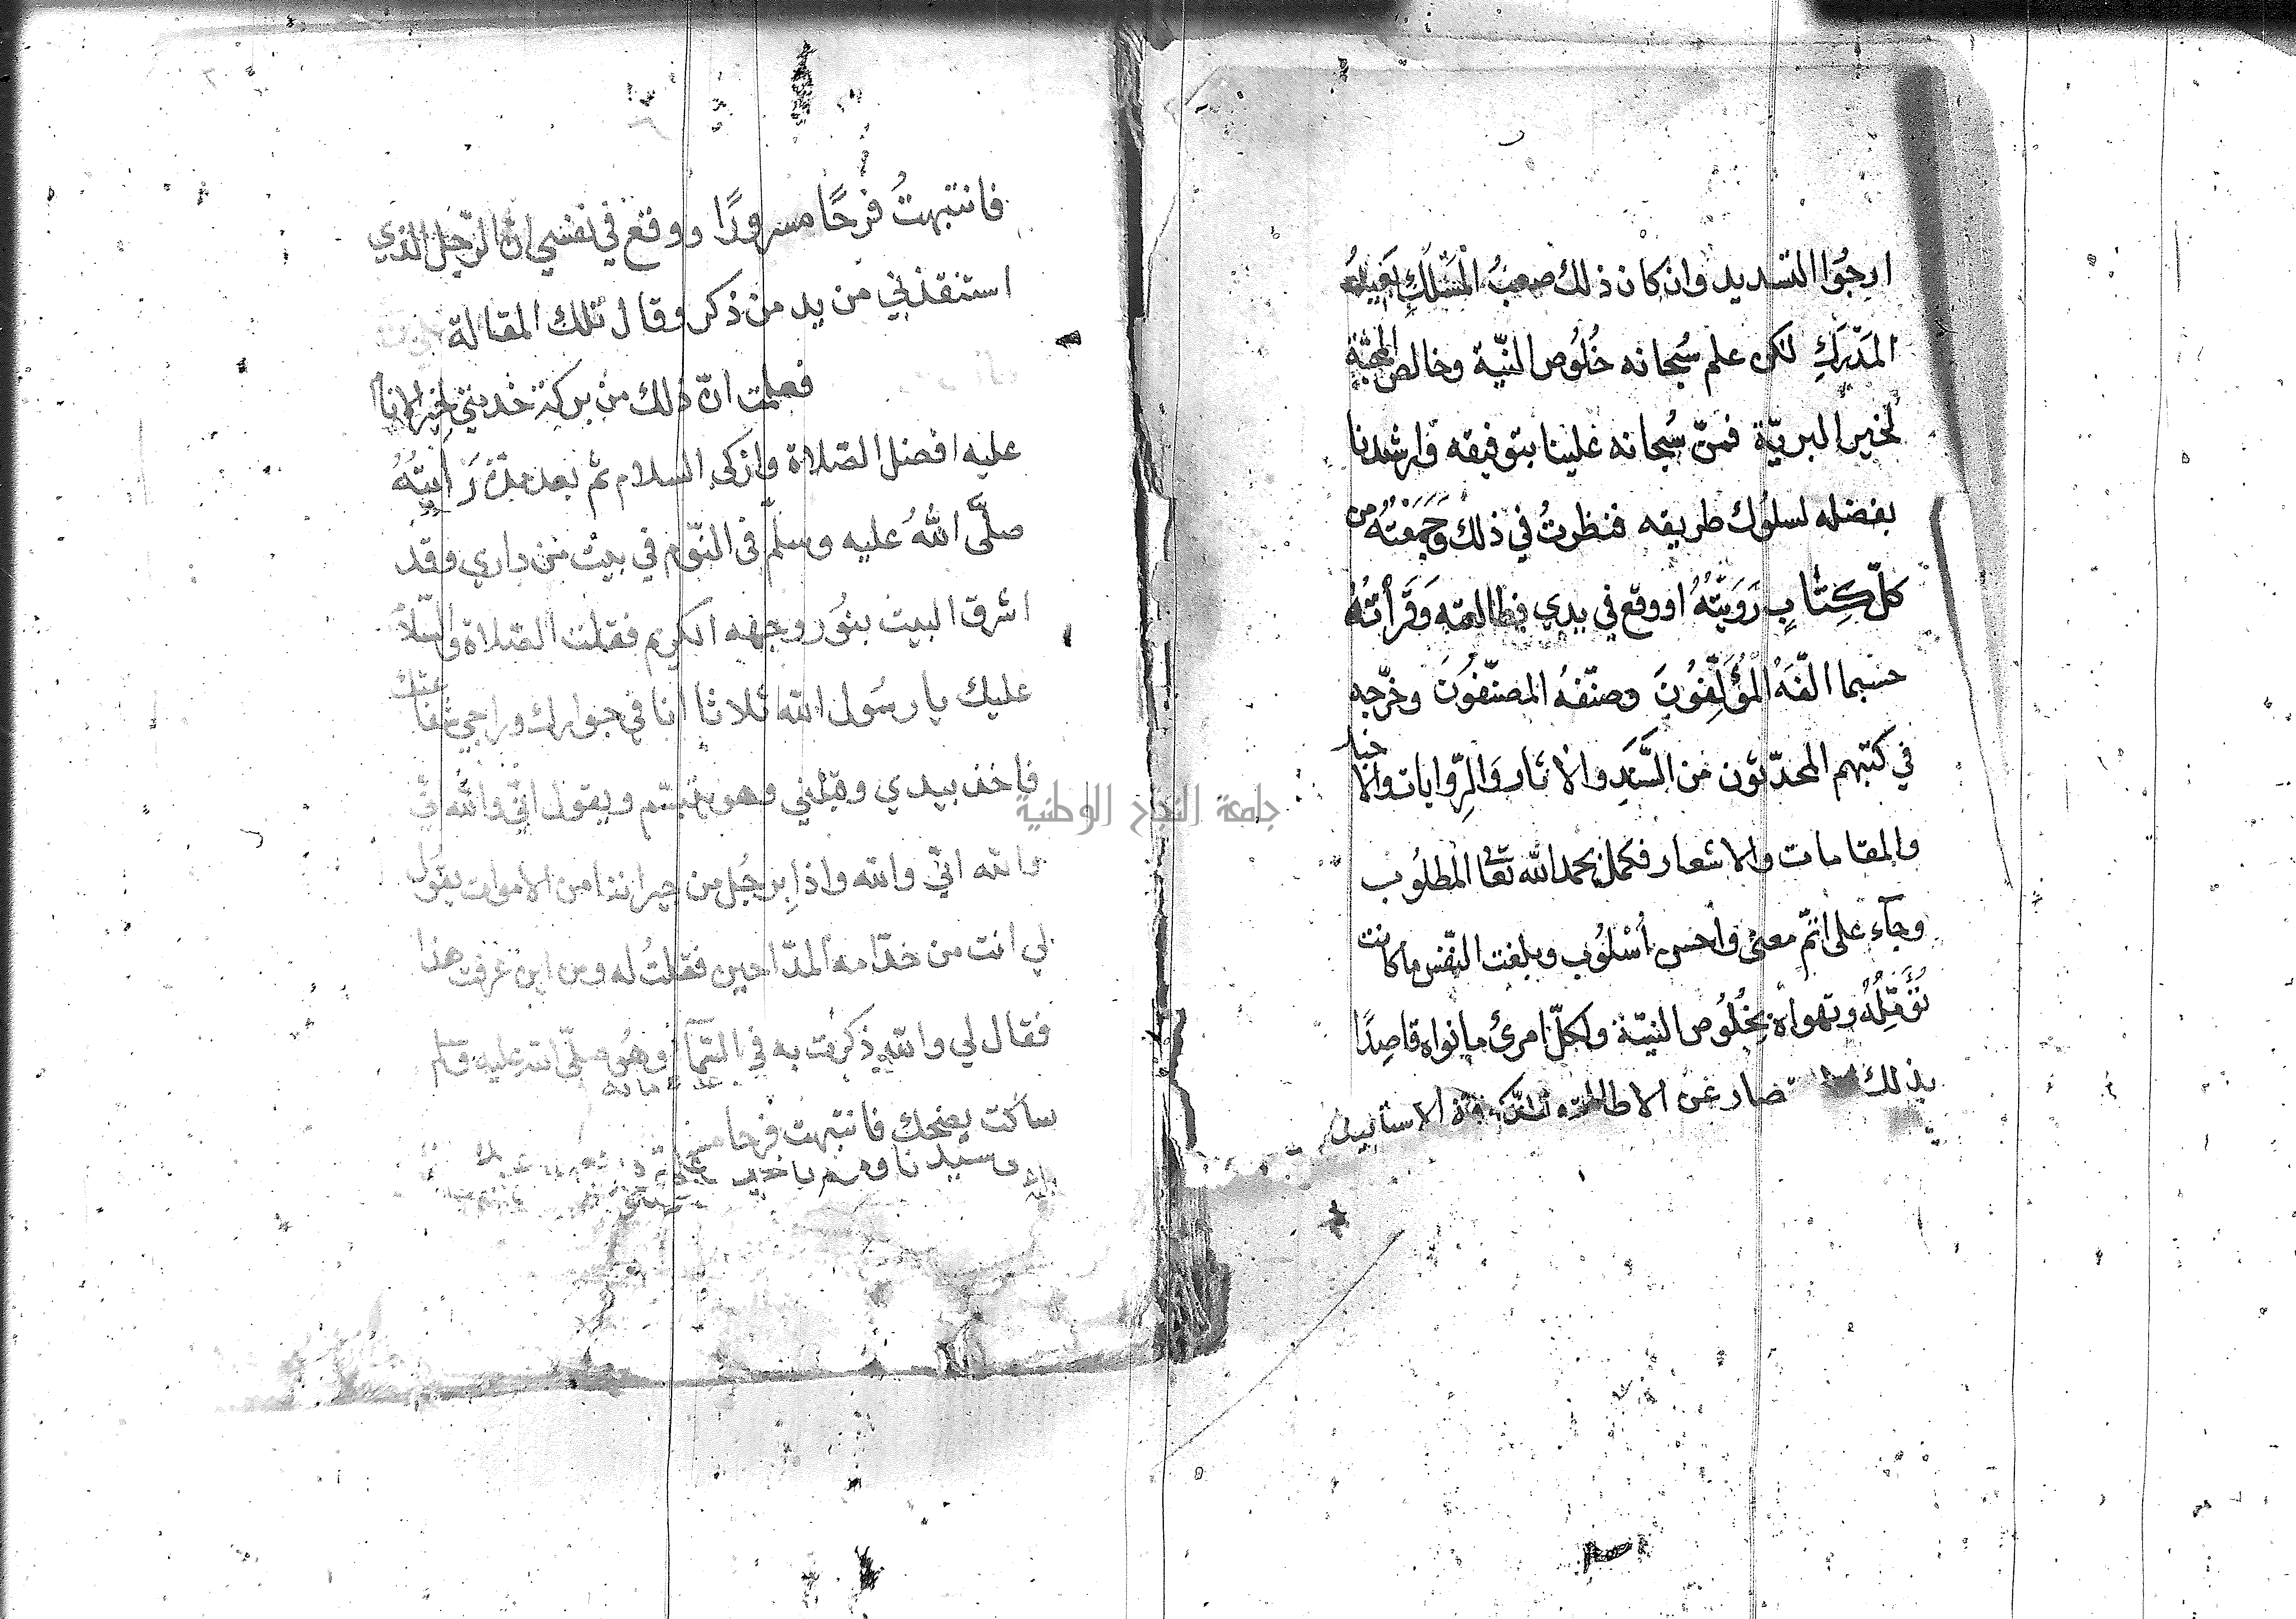 ارجُوا التسديد وان كان ذلك صعبُ المَسْلَكِ بَعِيدُ
المَدْرَكِ لكن علم سُبحانه خُلُوص النيّة وخالص المحبّة
لخير البريّة فمنّ سُبحانه علينا بتوفيقه وارشدنا
بفضله لسلوك طريقه فنظرتُ في ذلك وَجَمَعْتُهُ من
كلّ كِتَابٍ رَوَيْتُهُ او وقع في يدي فطالعته وَقَرأتُهُ
حسبما الّفَهُ المُؤَلِّفُونَ وصنّفهُ المصنّفُونَ وخرّجه
في كتبهم المحدّثون من السَّنَدِ والاثار وَالرِّوايات والاخبار
والمقامات والاشعار فكمل بحمد الله تعا المطلُوب
وجآء على اتمّ معنى واحسن أسْلُوب وبلغت النّفس ما كانت
تُؤَمِّلُهُ وتهواهُ بخُلُوص النيّة ولكلّ امرئ ما نواه قاصِدًا
بذلك عن الاطالة
فانتبهتُ فرحًا مسرورًا ووقع في نفسي انّ الرّجل الذي
استنقذني من يد من ذكر وقال تلك المقالة
فعلمت انّ ذلك من بركة خدمتي لخير الانا
عليه افضل الصّلاة وازكى السلام ثم بعد مدّة رَايتُهُ
صلَّى اللهُ عليه وسلّم فى النّوم في بيت من داري وقد
اشرق البيت بنُور وجهه الكريم فقلت الصّلاة والسّلا
عليك يا رسُول الله ثلاثا انا في جوارك وراجي شفاعتك
فاخذ بيدي وقبلني وهو يتبسّم ويقول ايّ والله ايّ
والله ايّ والله واذا برجُل من جيراننا من الاموات يقول
لي انت من خدّامه المدّاحين فقلتُ له ومن اين عرفت هذا
فقال لي والله ذكرت به في السّمآء وهُو صلّى الله عليه وسلم
ساكت يضحك فانتبهت فرحا
سيدنا
جامعة النجاح الوطنية